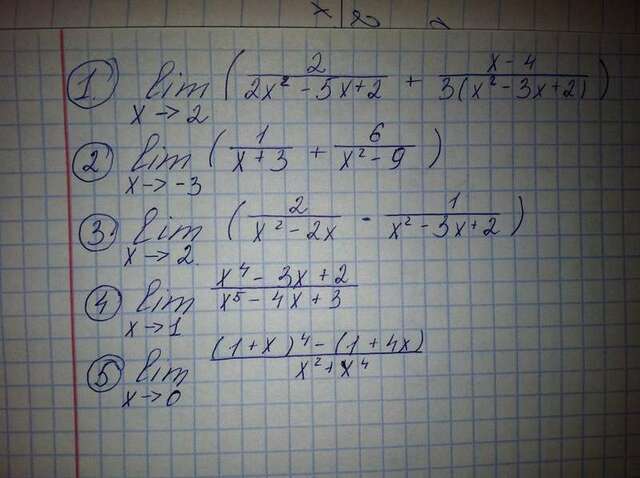 1. lim x→2 ( 2/(2x² - 5x + 2) + (x - 4)/(3(x² - 3x + 2)) )
2. lim x→-3 ( 1/(x + 3) + 6/(x² - 9) )
3. lim x→2 ( 2/(x² - 2x) - 1/(x² - 3x + 2) )
4. lim x→1 (x⁴ - 3x + 2)/(x⁵ - 4x + 3)
5. lim x→0 ((1 + x)⁴ - (1 + 4x))/(x² + x⁴)